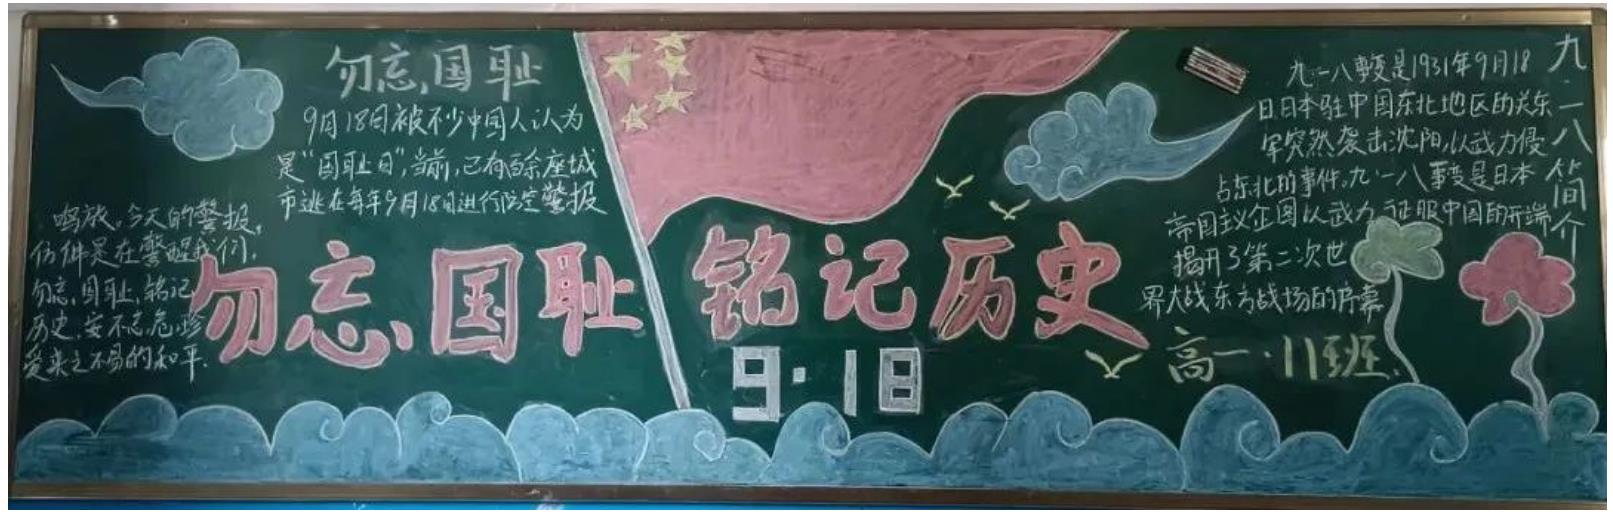 勿忘国耻
9月18日被不少中国人认为
是“国耻日”,当前,已有百余座城
市选在每年9月18日进行防空警报
鸣放。今天的警报,
仿佛是在警醒我们,
勿忘国耻,铭记
历史,安不忘危,珍
爱来之不易的和平.
勿忘国耻 铭记历史
9·18
九·一八简介
九·一八事变是1931年9月18
日日本驻中国东北地区的关东
军突然袭击沈阳,以武力侵
占东北的事件。九·一八事变是日本
帝国主义企图以武力征服中国的开端
揭开了第二次世
界大战东方战场的序幕
高一·11班